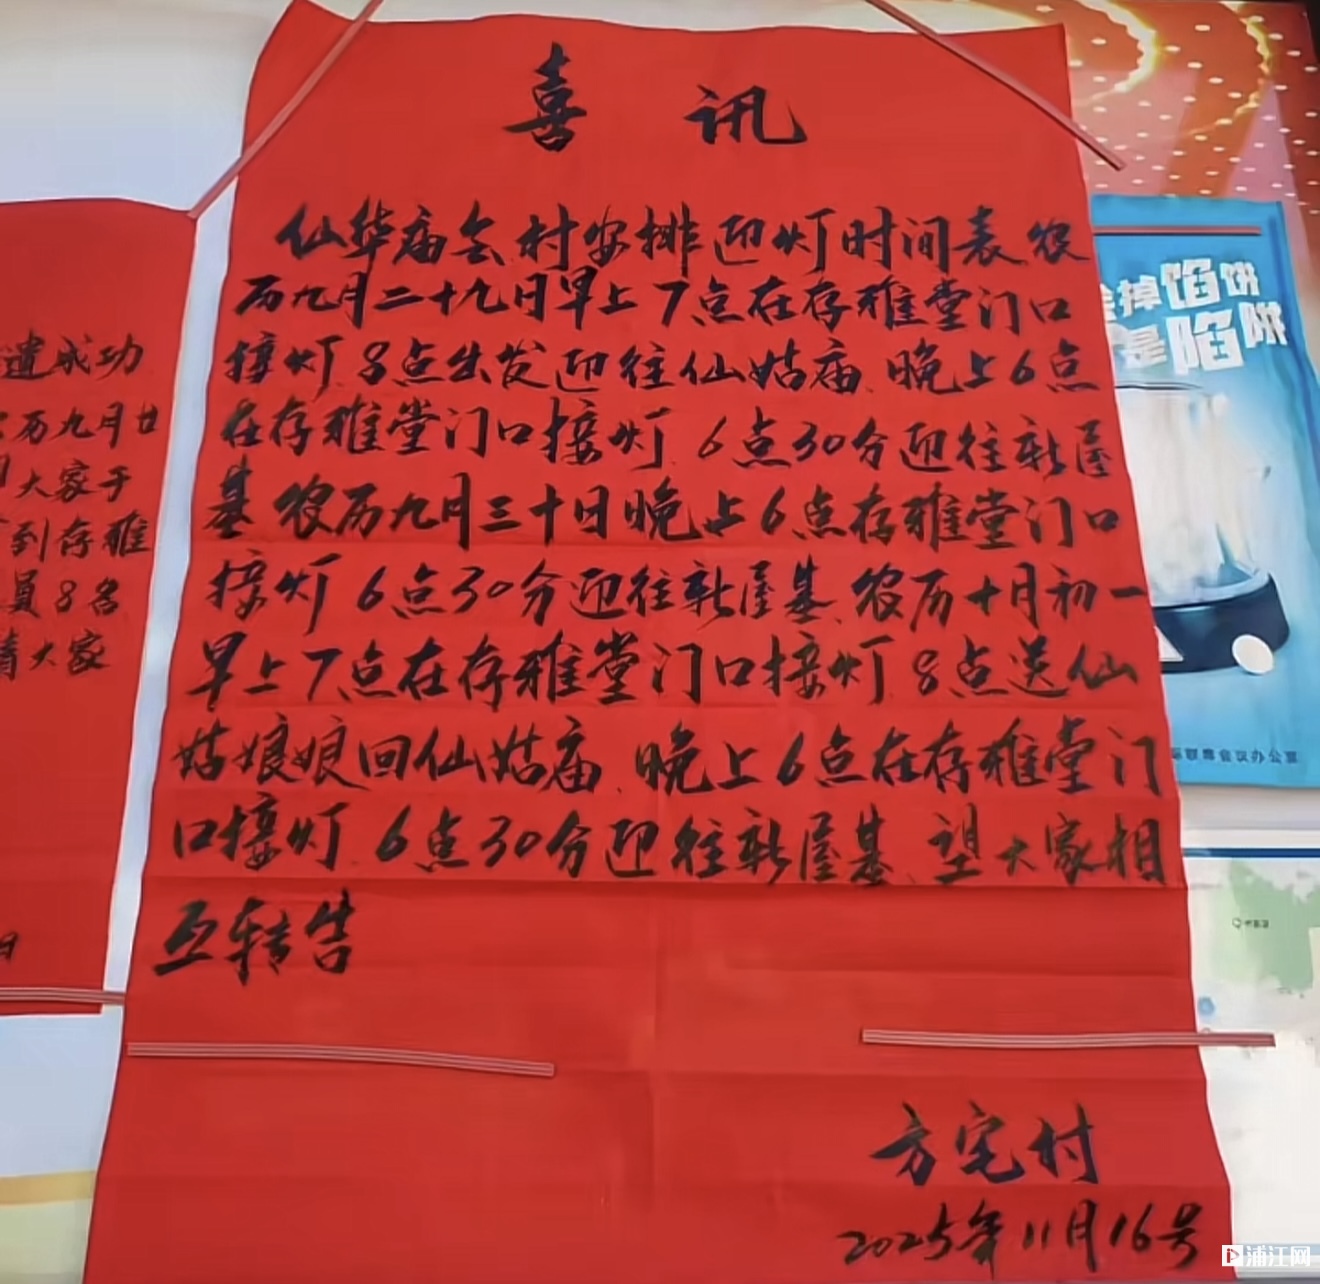 喜讯
仙华庙会村安排迎灯时间表农
历九月二十九日早上7点在存雅堂门口
接灯8点出发迎往仙姑庙、晚上6点
在存雅堂门口接灯、6点30分迎往新屋
基农历九月三十日晚上6点存雅堂门口
接灯6点30分迎往新屋基、农历十月初一
早上7点在存雅堂门口接灯、8点送仙
姑娘娘回仙姑庙、晚上6点在存雅堂门
口接灯、6点30分迎往新屋基、望大家相
互转告
方宅村
2025年11月16号
遗成功
历九月廿
大家于
到存雅
员8名
请大家
日
掉馅饼
是陷阱
联席会议办公室
浦江网